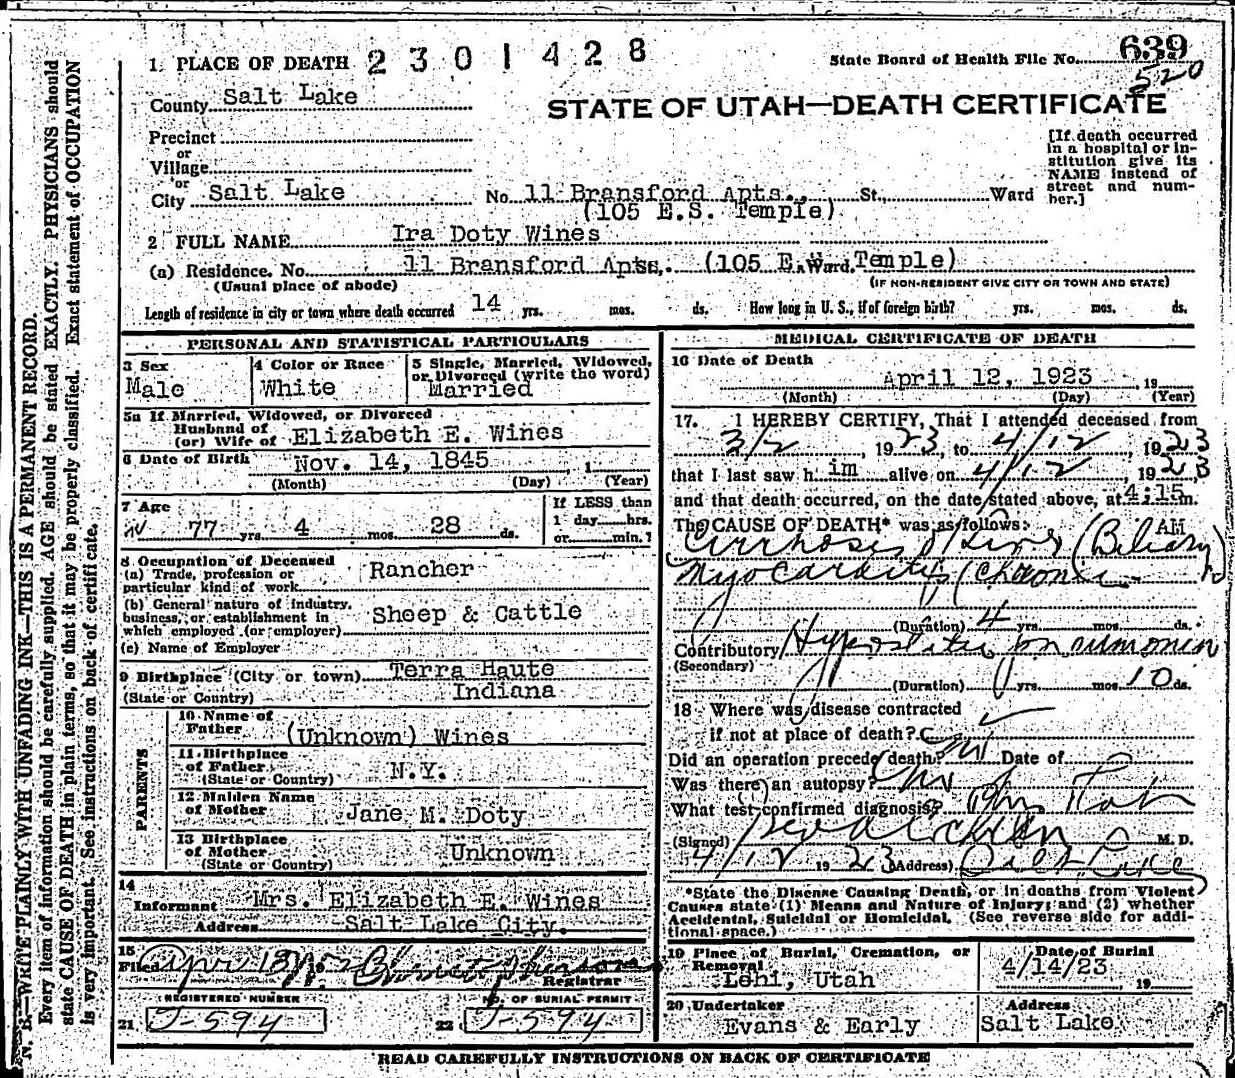 1. PLACE OF DEATH 2 3 0 1 4 2 8
State Board of Health File No. 639
520
County Salt Lake
STATE OF UTAH—DEATH CERTIFICATE
Precinct
or
Village
or
City Salt Lake No. 11 Bransford Apts., St., Ward
(105 E.S. Temple)
[If death occurred
in a hospital or in-
stitution give its
NAME instead of
street and num-
ber.]
2 FULL NAME Ira Doty Wines
(a) Residence. No. 11 Bransford Apts. (105 E. Ward. Temple)
(Usual place of abode) (IF NON-RESIDENT GIVE CITY OR TOWN AND STATE)
Length of residence in city or town where death occurred 14 yrs. mos. ds. How long in U. S., if of foreign birth? yrs. mos. ds.
PERSONAL AND STATISTICAL PARTICULARS
3 Sex
Male
4 Color or Race
White
5 Single, Married, Widowed,
or Divorced (write the word)
Married
5a If Married, Widowed, or Divorced
Husband of
(or) Wife of Elizabeth E. Wines
6 Date of Birth Nov. 14, 1845, 1
(Month) (Day) (Year)
7 Age
77 yrs. 4 mos. 28 ds.
If LESS than
1 day hrs.
or min.?
8 Occupation of Deceased
(a) Trade, profession or
particular kind of work Rancher
(b) General nature of industry,
business, or establishment in
which employed (or employer) Sheep & Cattle
(c) Name of Employer
9 Birthplace (City or town) Terra Haute
(State or Country) Indiana
PARENTS
10 Name of
Father (Unknown) Wines
11 Birthplace
of Father
(State or Country) N.Y.
12 Maiden Name
of Mother Jane M. Doty
13 Birthplace
of Mother
(State or Country) Unknown
14
Informant Mrs. Elizabeth E. Wines
Address Salt Lake City.
15
Filed Apr 13 19
Registrar
REGISTERED NUMBER
21 J-594
NO. OF BURIAL PERMIT
22 J-594
MEDICAL CERTIFICATE OF DEATH
16 Date of Death
April 12, 1923, 19
(Month) (Day) (Year)
17. I HEREBY CERTIFY, That I attended deceased from
3/2, 1923, to 4/12, 1923
that I last saw him alive on 4/12, 1923,
and that death occurred, on the date stated above, at 4:15 m.
AM
The CAUSE OF DEATH* was as follows:
Cirrhosis of Liver (Biliary)
Myocarditis (Chronic)
(Duration) 4 yrs. mos. ds.
Contributory Hypostatic pneumonia
(Secondary)
(Duration) yrs. mos. 10 ds.
18 Where was disease contracted
if not at place of death?
Did an operation precede death? no Date of
Was there an autopsy? no
What test confirmed diagnosis?
(Signed) M. D.
4/12 1923 (Address) Salt Lake
*State the Disease Causing Death, or in deaths from Violent
Causes state (1) Means and Nature of Injury; and (2) whether
Accidental, Suicidal or Homicidal. (See reverse side for addi-
tional space.)
19 Place of Burial, Cremation, or
Removal
Lehi, Utah
Date of Burial
4/14/23, 19
20 Undertaker
Evans & Early
Address
Salt Lake
READ CAREFULLY INSTRUCTIONS ON BACK OF CERTIFICATE
N. B.—WRITE PLAINLY WITH UNFADING INK—THIS IS A PERMANENT RECORD.
Every item of information should be carefully supplied. AGE should be stated EXACTLY. PHYSICIANS should
state CAUSE OF DEATH in plain terms, so that it may be properly classified. Exact statement of OCCUPATION
is very important. See instructions on back of certificate.